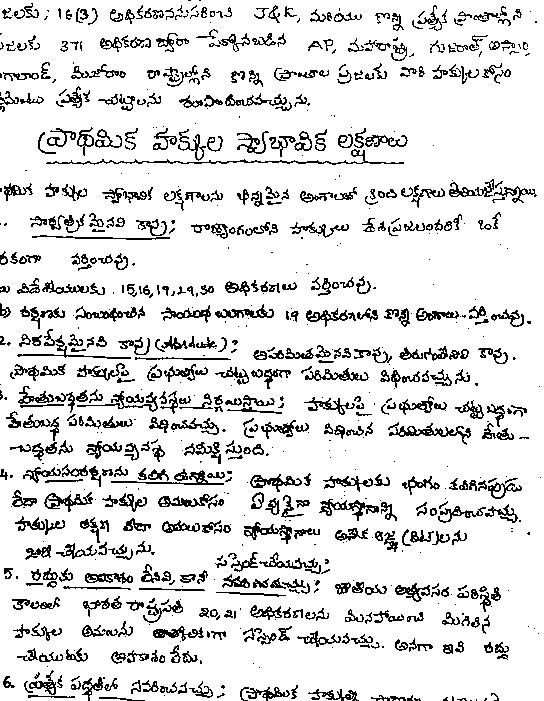 జలకు; 16(3) అధికరణననుసరించి J&K, మరియు కొన్ని ప్రత్యేక ప్రాంతాల్లోని
జలకు 371 అధికరణ ద్వారా పేర్కొనబడిన AP, మహారాష్ట్ర, గుజరాత్, అస్సాం,
గాలాండ్, మిజోరాం రాష్ట్రాల్లోని కొన్ని ప్రాంతాల ప్రజలకు వారి హక్కుల కోసం
ప్రత్యేక చట్టాలను రూపొందించవచ్చును.
ప్రాథమిక హక్కుల స్వాభావిక లక్షణాలు
థమిక హక్కుల స్వాభావిక లక్షణాలను భిన్నమైన అంశాలతో క్రింది లక్షణాలు తెలియజేస్తున్నాయి
సార్వత్రికమైనవి కావు; రాజ్యాంగంలోని హక్కులు దేశప్రజలందరికీ ఒకే
రకంగా వర్తించవు.
విదేశీయులకు 15,16,19,29,30 అధికరణలు వర్తించవు.
b) రక్షణకు సంబంధించిన సాయుధ బలగాలకు 19 అధికరణలోని కొన్ని అంశాలు వర్తించవు.
2. నిరపేక్షమైనవి కావు (Absolute); అపరిమితమైనవి కావు, తిరుగులేనివి కావు.
ప్రాథమిక హక్కులపై ప్రభుత్వాలు చట్టబద్ధంగా పరిమితులు విధించవచ్చును.
3. హేతుబద్ధతను న్యాయవ్యవస్థలు నిర్ణయిస్తాయి; హక్కులపై ప్రభుత్వాలు చట్టబద్ధంగా
హేతుబద్ధ పరిమితులు విధించవచ్చు. ప్రభుత్వాలు విధించిన పరిమితులలోని హేతు-
బద్ధతను న్యాయవ్యవస్థ సమీక్షిస్తుంది.
4. న్యాయసంరక్షణను కలిగి ఉన్నాయి; ప్రాథమిక హక్కులకు భంగం కలిగినప్పుడు
లేదా ప్రాథమిక హక్కుల అమలుకోసం ఏ వ్యక్తైనా న్యాయస్థానాన్ని సంప్రదించవచ్చు.
హక్కుల రక్షణ లేదా అమలుకోసం న్యాయస్థానాలు అనేక ఆజ్ఞ (రిట్) లను
జారీ చేయవచ్చును.
సస్పెండ్ చేయవచ్చు;
5. రద్దుకు అవకాశం లేనివి, కానీ సవరించవచ్చు; జాతీయ అత్యవసర పరిస్థితి
కాలంలో భారత రాష్ట్రపతి 20,21 అధికరణలను మినహాయించి మిగిలిన
హక్కుల అమలును తాత్కాలికంగా సస్పెండ్ చేయవచ్చు. అనగా ఇవి రద్దు
చేయుటకు అవకాశం లేదు.
6. ప్రత్యేక పద్ధతిలో సవరించవచ్చు; ప్రాథమిక హక్కుల్లో